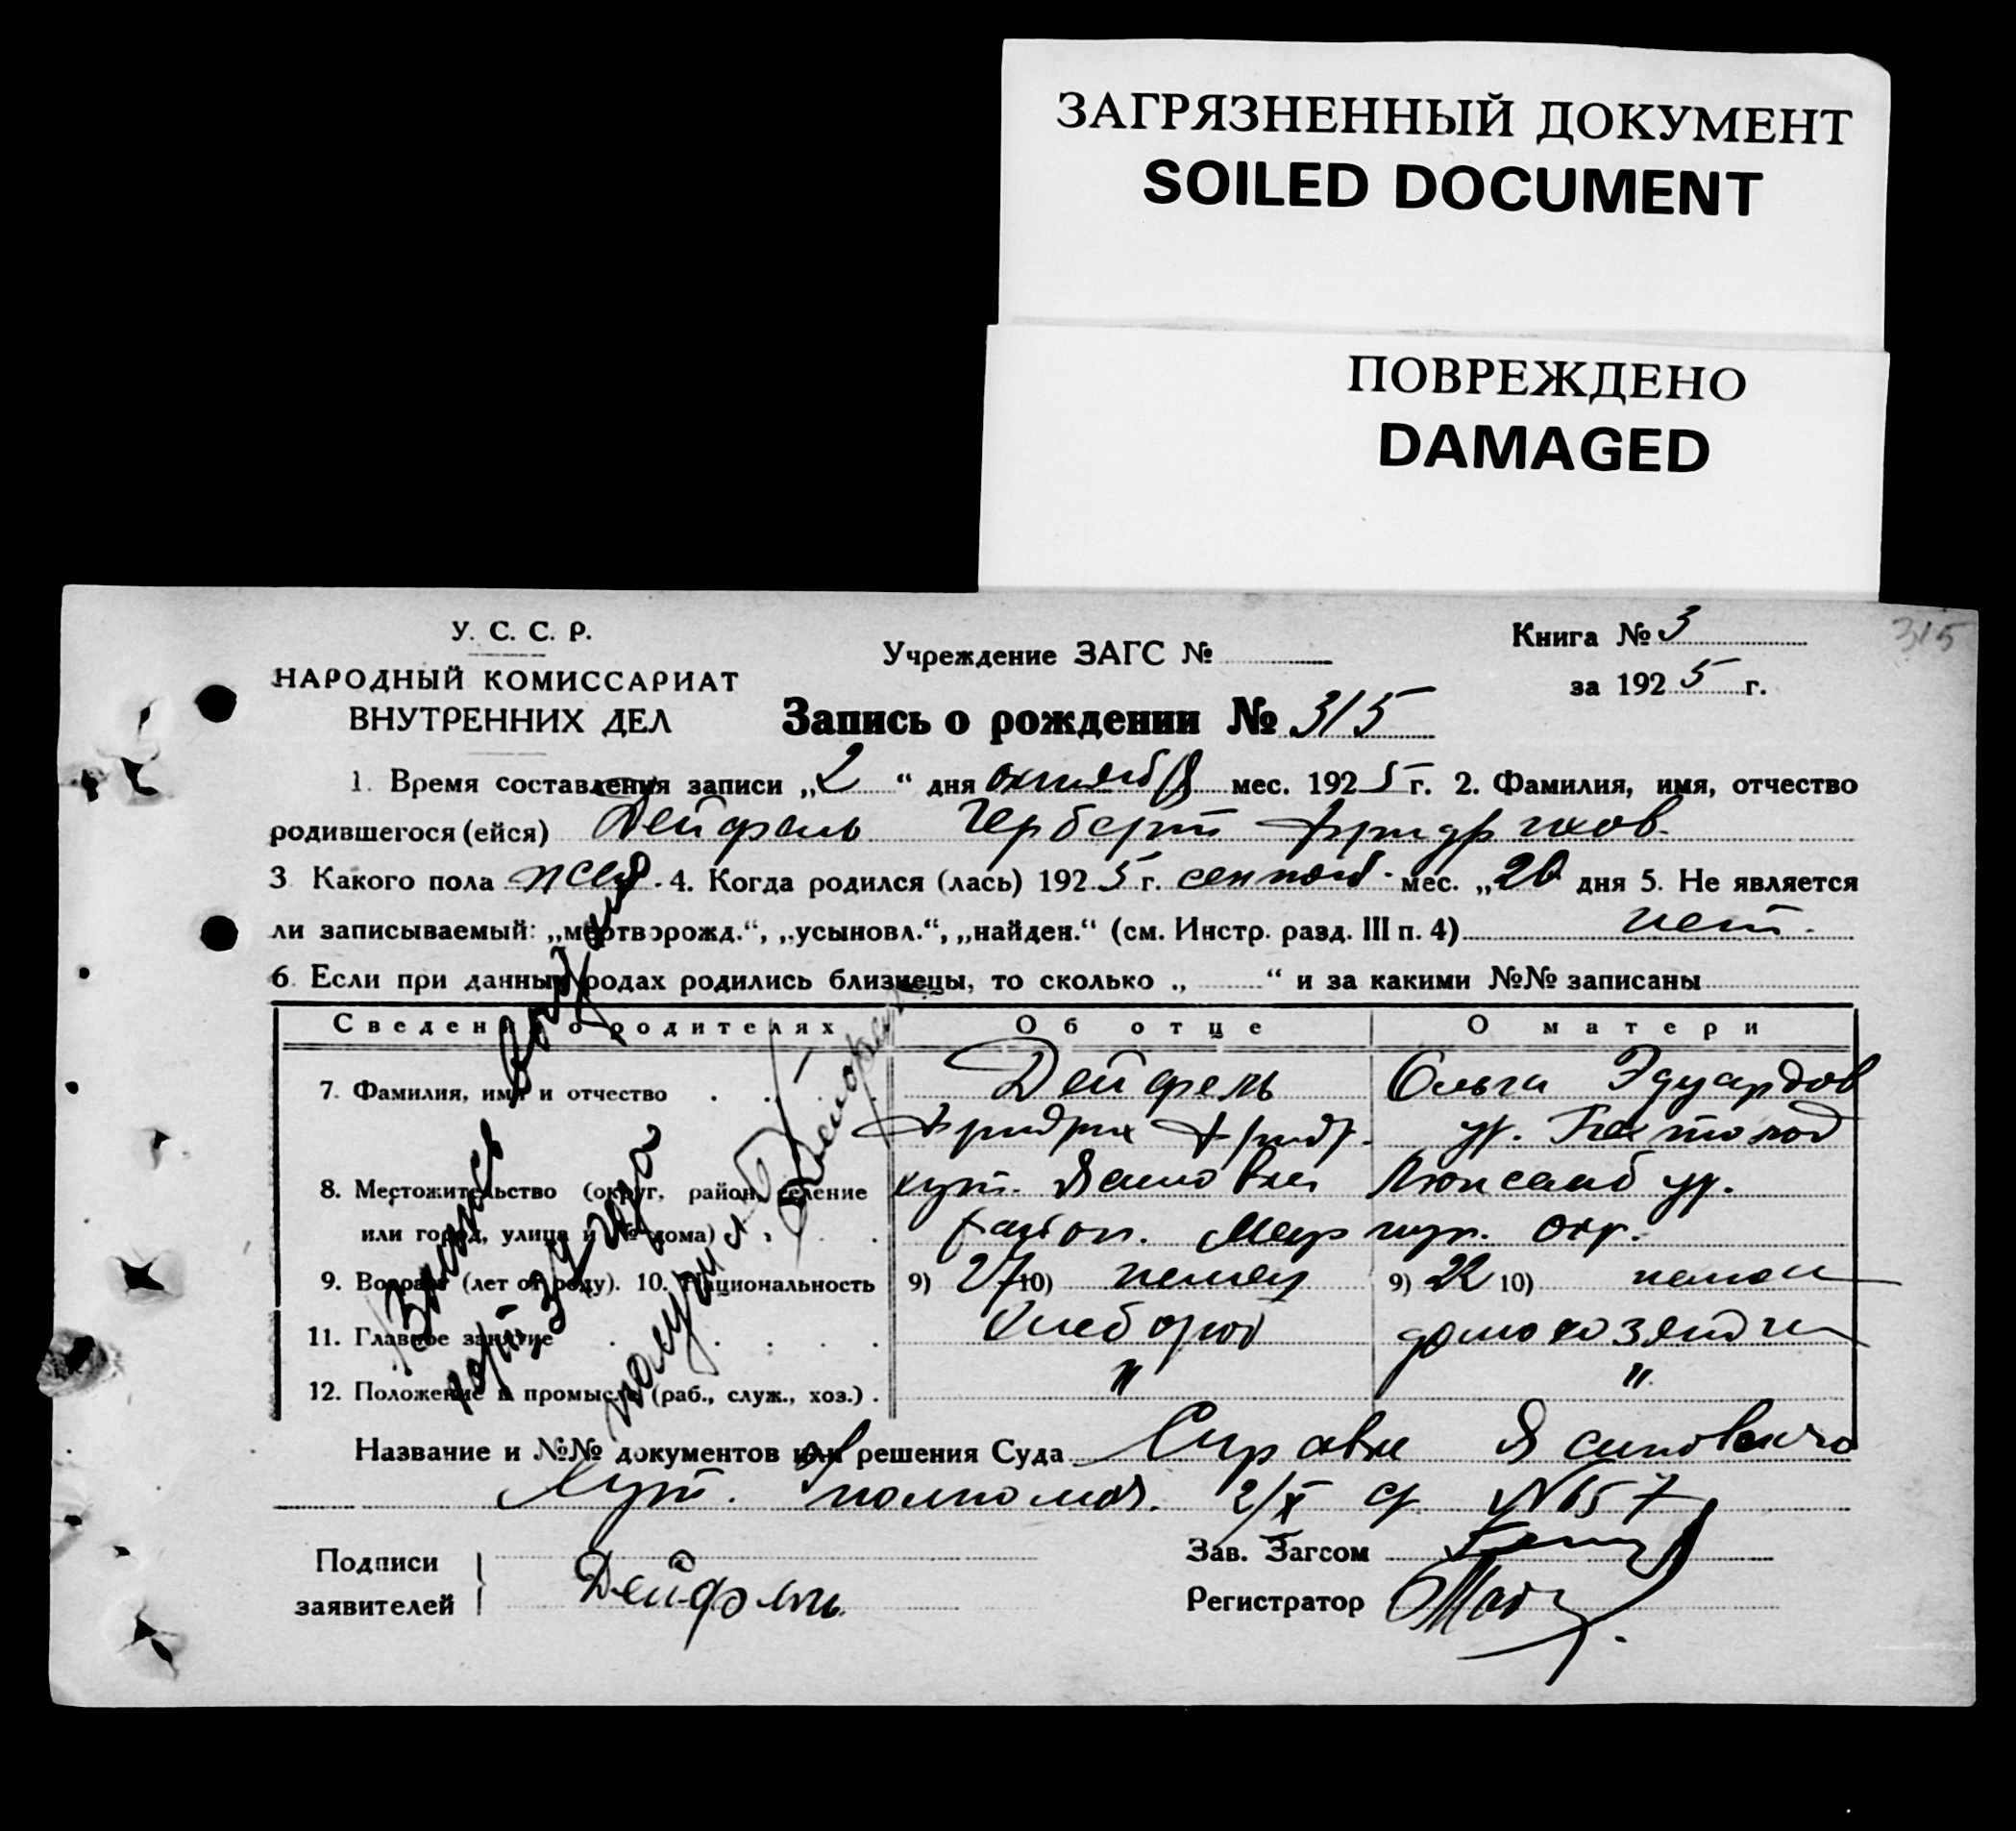 ЗАГРЯЗНЕННЫЙ ДОКУМЕНТ
SOILED DOCUMENT
ПОВРЕЖДЕНО
DAMAGED
У. С. С. Р.
НАРОДНЫЙ КОМИССАРИАТ
ВНУТРЕННИХ ДЕЛ
Учреждение ЗАГС №
Книга № 3
315
за 1925 г.
Запись о рождении № 315
1. Время составления записи „2“ дня октября мес. 1925 г. 2. Фамилия, имя, отчество
родившегося (ейся) Дейфель Герберт
3 Какого пола 4. Когда родился (лась) 1925 г. сентяб. мес. „20 дня 5. Не является
ли записываемый: „мертворожд.“, „усыновл.“, „найден.“ (см. Инстр. разд. III п. 4) нет.
6. Если при данных родах родились близнецы, то сколько „ “ и за какими №№ записаны
Сведения о родителях Об отце О матери
7. Фамилия, имя и отчество Дейфель Ольга Эдуардов
Фридрих Фридр. ур.
8. Местожительство (округ, район, селение хут. Люксембур.
или город, улица и № дома) район. Мариуп. окр.
9. Возраст (лет от роду). 10. Национальность 9) 27 10) немец 9) 22 10) немка
11. Главное занятие Хлебороб домохозяйка
12. Положение в промысле (раб., служ., хоз.) . " "
Название и №№ документов или решения Суда Справка
Хут. 2/X № 657
Подписи
заявителей
Дейфель
Зав. Загсом
Регистратор
Запись
получил Дейфель